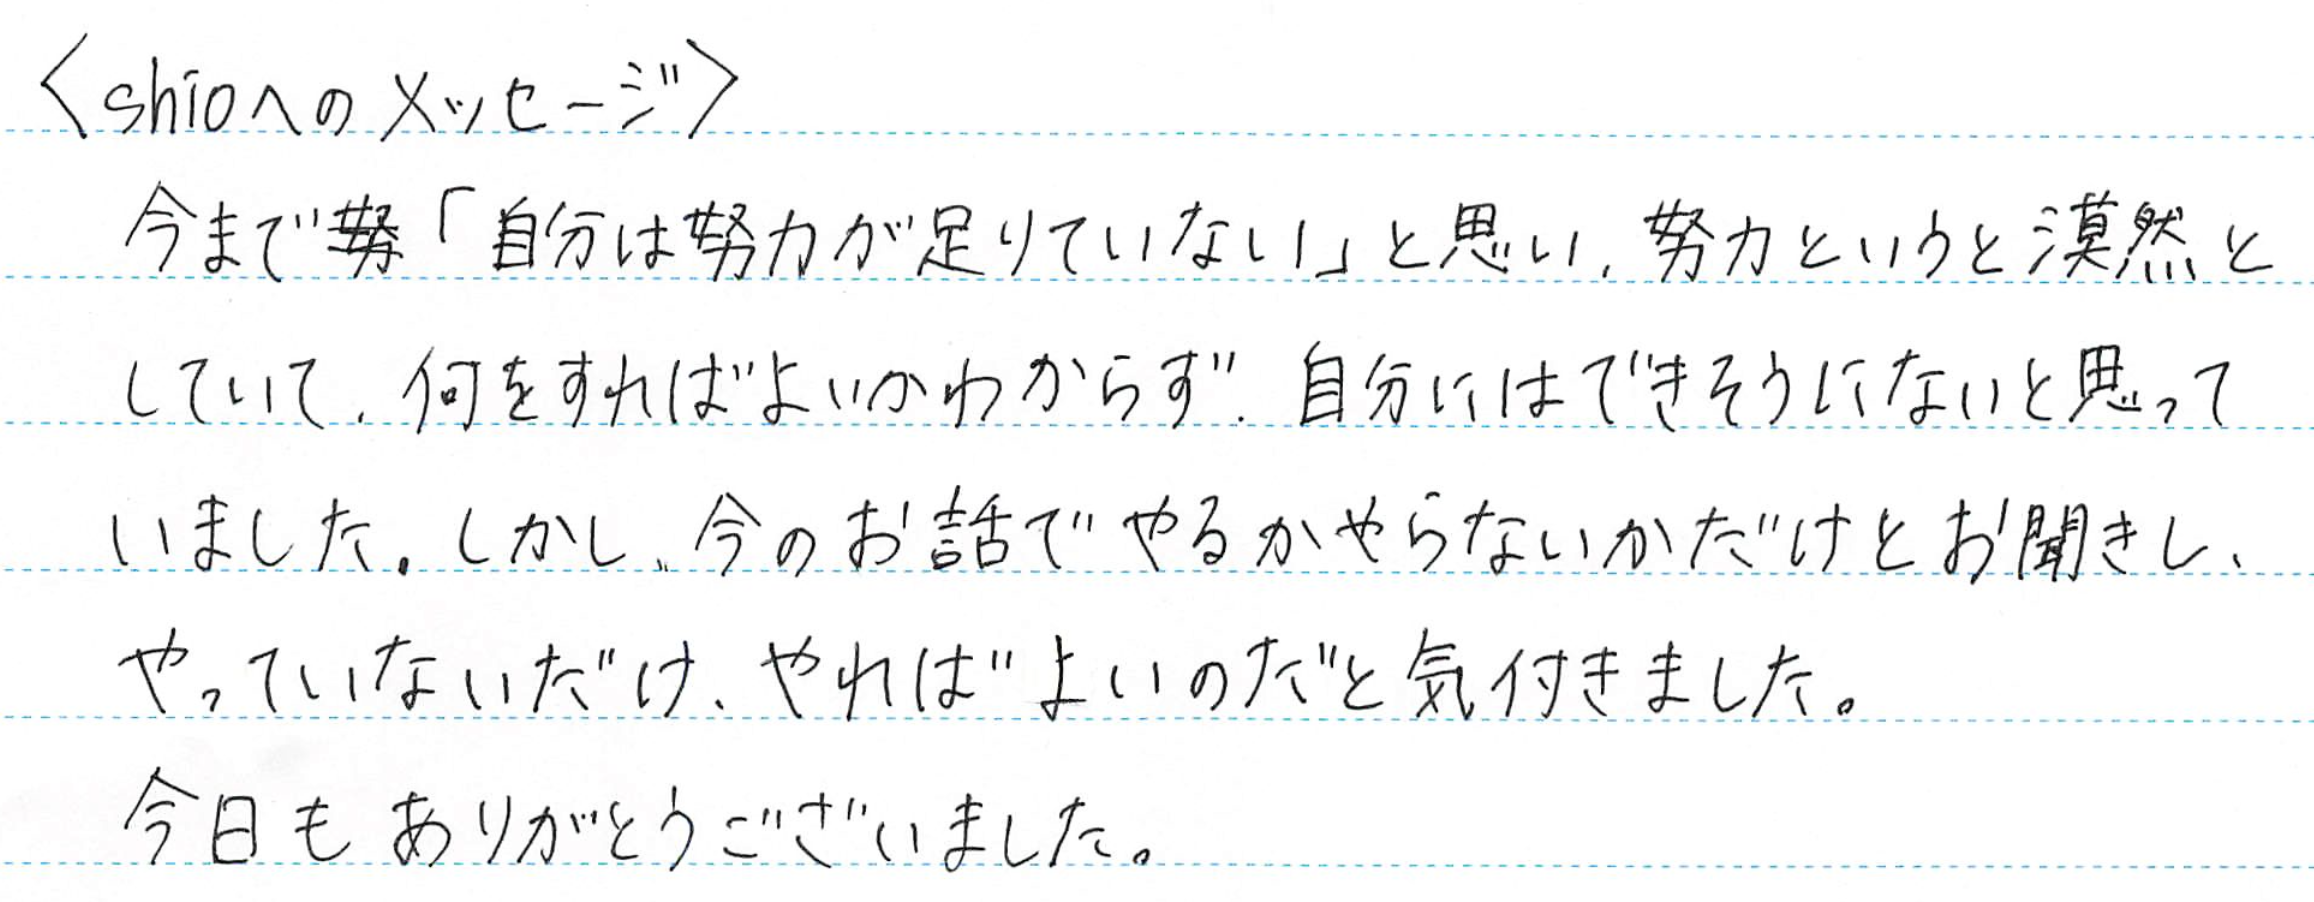 〈shioへのメッセージ〉
今まで「自分は努力が足りていない」と思い、努力というと漠然と
していて、何をすればよいかわからず、自分にはできそうにないと思って
いました。しかし、今のお話でやるかやらないかだけとお聞きし、
やっていないだけ、やればよいのだと気付きました。
今日もありがとうございました。